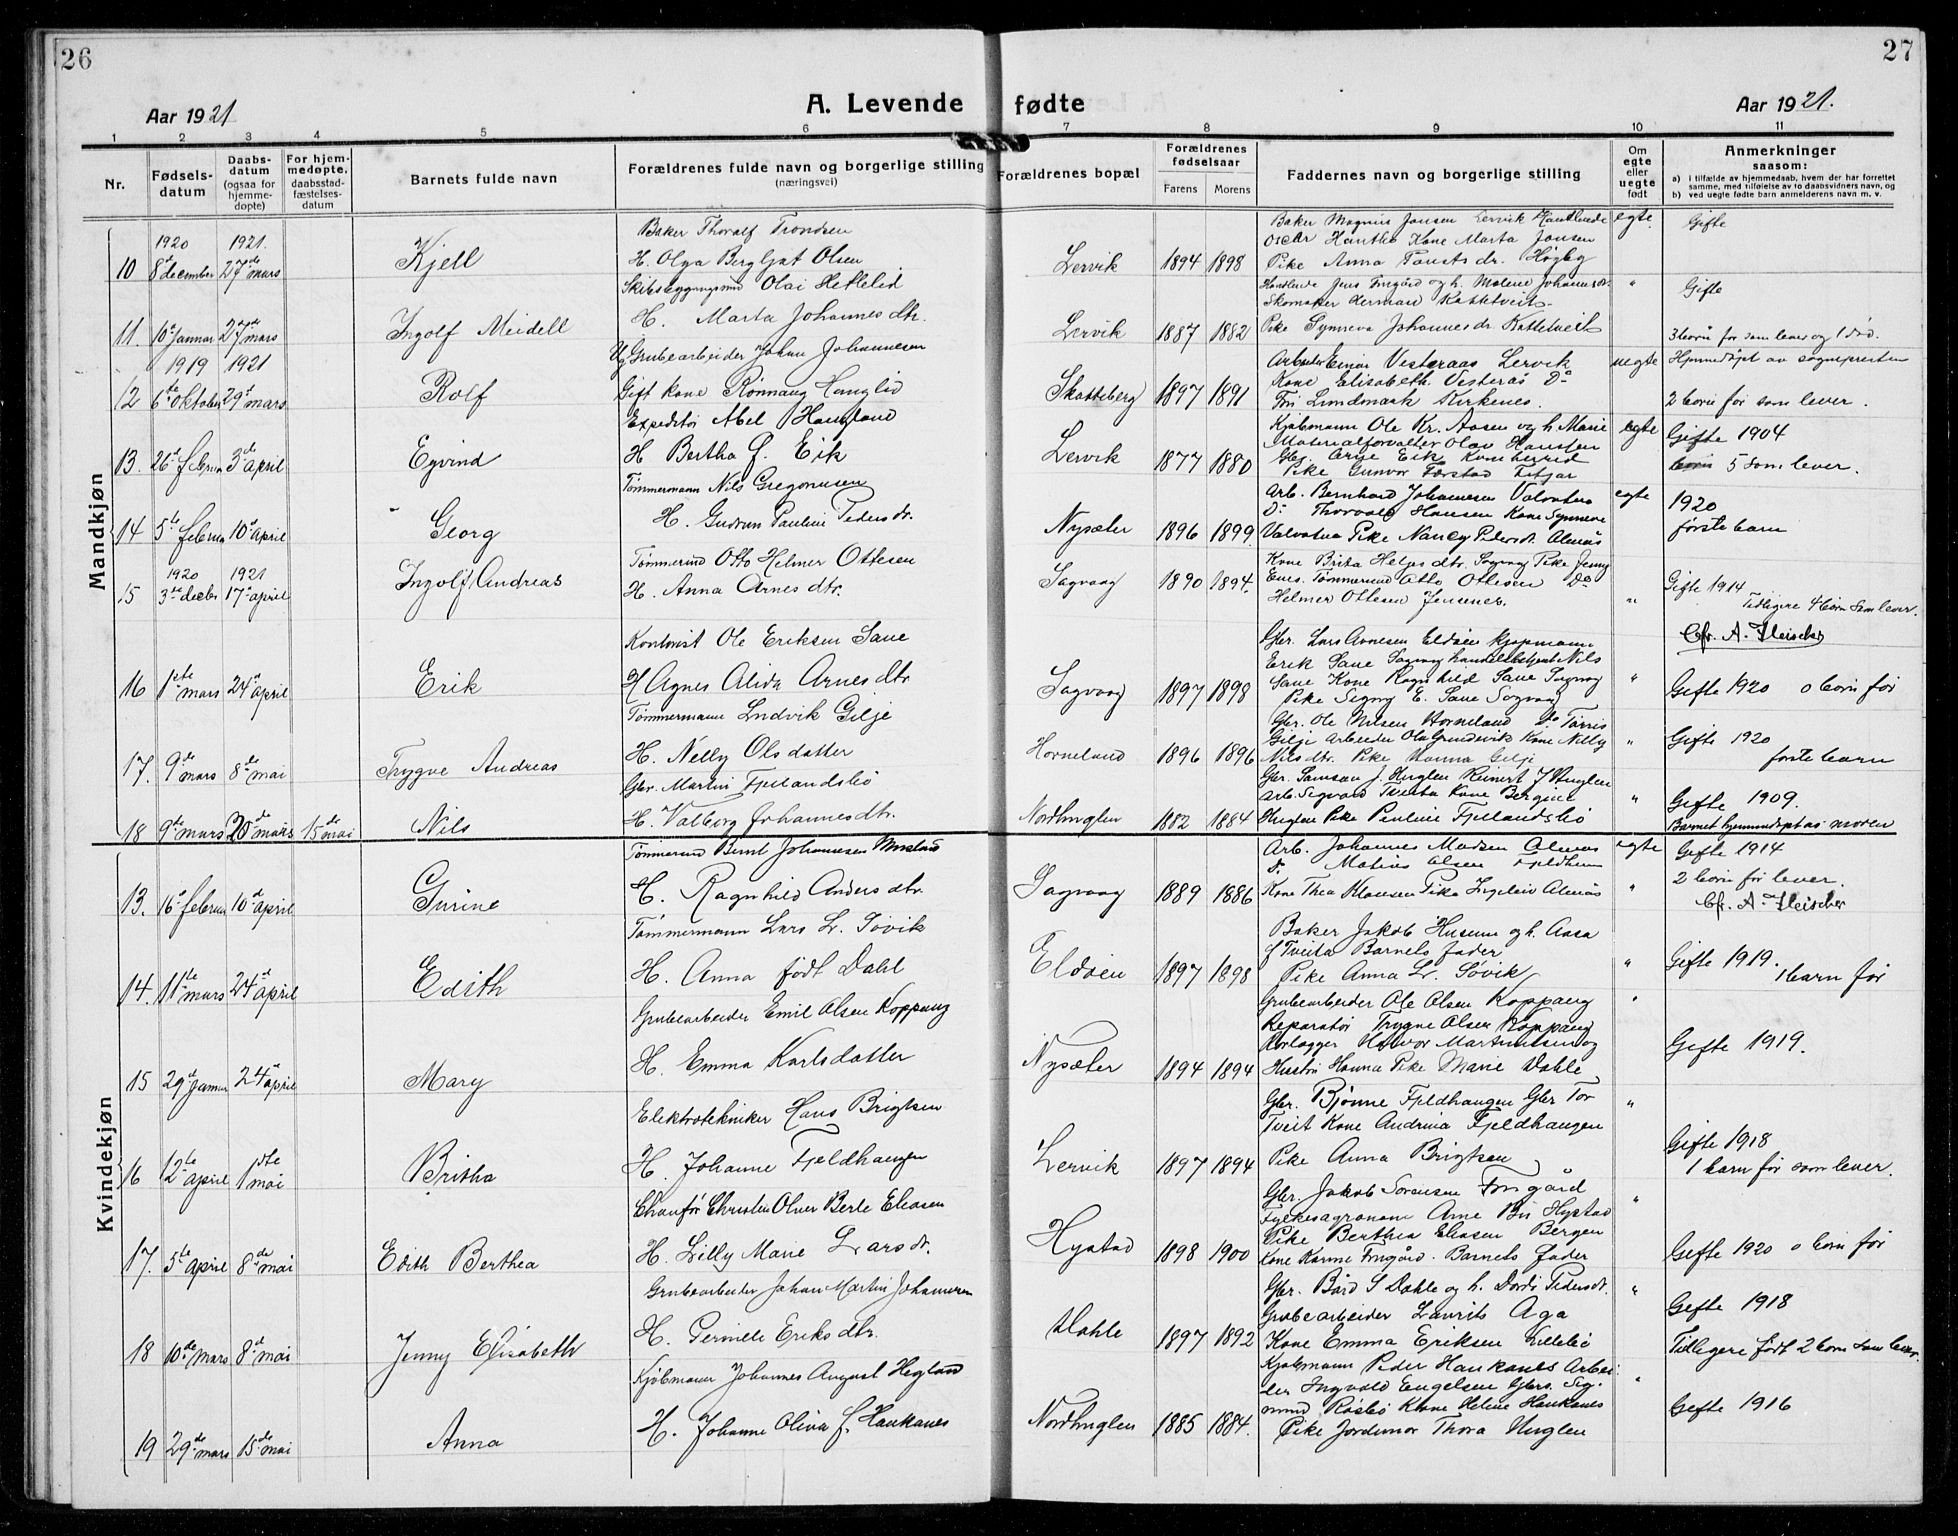 26
27
Aar 1921
A. Levende fødte
Aar 1921.
1 2 3 4 5 6 7 8 9 10 11
Nr.
Fødsels-datum
Daabs-datum (ogsaa for hjemme-døpte)
For hjem-medøpte, daabsstad-fæstelses-datum
Barnets fulde navn
Forældrenes fulde navn og borgerlige stilling (næringsvei)
Forældrenes bopæl
Forældrenes fødselsaar
Farens Morens
Faddernes navn og borgerlige stilling
Om egte eller uegte født
Anmerkninger saasom:
a) i tilfælde av hjemmedaab, hvem der har forrettet samme, med tilføielse av to daabsvidners navn, og
b) ved uegte fødte barn anmelderens navn m. v.
Mandkjøn
1920 1921.
10 8de december 27de mars
Kjell
Baker Thoralf Trondsen
H. Olga Bergljot Olsen
Lervik 1894 1898
Baker Magnus Jensen Lervik Handlende
Oscar Kone Marta Jensen
Pike Anna
egte.
Gifte
11. 10de Januar 27de mars
Ingolf Meidell
Olai Hettleid
H. Marta Johannesdtr.
Lervik 1887 1882
og h. Malene Johannesdtr.
Skomaker Herman Kattetveit
Pike Synneva Johannesdr. Kattetveit
"
Gifte
3 børn før som lever og 1 død.
1919 1921
12 6te oktober 29de mars
Rolf
Ug Grubearbeider Johan Johannesen
Gift kone Rønnaug Hauglid
Skotteberg 1897 1891
Arbeider Einar Vesteraas Lervik
Kone Elisabeth Vesterås Do
Lundmark Kirkenes.
uegte
Hjemmedøpt av sognepresten
2 børn før som lever.
13. 26de februar 3de april
Eyvind
Expeditør Abel Haugland
H Bertha f. Eik
Lervik 1877 1880
Kjøbmann Ole Kr. Aasen og h Marie
Materialforvalter Olav Hansten
Gbr. Arne Eik Kvinherred
Pike Gunvor Førstad Fitjar
egte
Gifte 1904
5 som lever.
14 5te februar 10de april
Georg
Tømmermann Nils Gregoriussen
H. Gudrun Pauline Pedersdr.
Nysæter 1896 1899.
Arb. Bernhard Johannesen Valvatne
Do Thorvald Hansen Kone Synneve
Valvatne Pike Nancy Pedersdr. Almås
egte
1920
første barn
1920 1921
15 3de decbr 17de april
Ingolf Andreas
Tømmermd Otto Helmer Ottesen
H. Anna Arnesdtr.
Sagvaag 1890 1894.
Kone Brita Helgesdtr. Sagvaag Pike Jenny
Enes. Tømmermd Otto Ottesen Do
Helmer Ottesen Jensenes.
"
Gifte 1914
Tidligere 4 børn som lever.
Cfr. A. Fleischer
16 1ste mars 24de april
Erik
Kontorist Ole Eriksen Sane
H Agnes Alida Arnesdtr
Sagvaag 1897 1898
Gbr. Lars Arnesen Eldøen Kjøpmann
Erik Sane Sagvaag handelsbetjent Nils
Sane Kone Ragnhild Sane Sagvaag
Pike Signy E. Sane Sagvaag
"
Gifte 1920 0 børn før
17. 9de mars 8de mai
Trygve Andreas
Tømmermann Ludvik Gilje
H. Nelly Olsdatter
Horneland 1896 1896
Gbr. Ole Nilsen Horneland Do Tørris
Gilje Arbeider Ola Grundevik Kone Nelly
Nilsdtr. Pike Hanna Gilje
"
Gifte 1920
første barn
18 9de mars 20de mars 15de mai
Nils
Gbr. Martin Fjelandsbø
H. Valborg Johannesdtr.
Nordhuglen 1882 1884
Gbr. Samson J. Huglen Reinert J Huglen
Arb. Sigvard Tveita Kone Bergine
Huglen Pike Pauline Fjelandsbø
"
Gifte 1909.
Barnet hjemmedøpt av moren
Kvindekjøn
13. 16de februar 10de april
Gurine
Tømmermd Bernt Johannesen
H. Ragnhild Andersdtr.
Sagvaag 1889 1886
Arb. Johannes Madsen Almås
Do Matias Olsen Fjeldheim
Kone Thea Klausen Pike Ingeleiv Almås
egte
"
Gifte 1914
2 børn før lever.
Cfr. A. Fleischer
14. 11te mars 24de april
Edith
Tømmermann Lars L. Søvik
H. Anna født Dahl
Eldøen 1897 1898
Baker Jakob Husum og h. Aasa
f Tveita Barnets fader
Pike Anna L. Søvik
"
Gifte 1919.
1 barn før
15 29de Januar 24de april
Mary
Grubearbeider Emil Olsen Koppang
H. Emma Karlsdatter
Nysæter 1894 1894
Grubearbeider Ole Olsen Koppang
Reparatør Trygve Olsen Koppang
Rørlegger Halvor Martinussen og
Hustru Hanna Pike Marie Dahle
"
Gifte 1919.
16 12te april 1ste mai
Britha
Elektrotekniker Hans Brigtsen
H. Johanne Fjeldhaugen
Lervik 1897 1894
Gbr. Bjønne Fjeldhaugen Gbr Tor
Tveit Kone Andrina Fjeldhaugen
Pike Anna Brigtsen
"
Gifte 1918
1 barn før som lever.
17. 5te april 8de mai
Edith Berthea
Chauffør Christen Oluer Berle Eliasen
H. Lilly Marie Larsdr.
Hystad 1898 1900
Gbr. Jakob Sørensen
Fylkesagronom Arne Bu Hystad
Pike Berthea Eliasen Bergen
Barnets fader
"
Gifte 1920 0 børn før
18 10de mars 8de mai
Jenny Elisabeth
Grubearbeider Johan Martin Johannesen
H. Pernille Eriksdtr.
Dahle 1897 1892
Gbr. Bård S Dahle og h. Dordi Pedersdtr.
Grubearbeider Laurits Aga
Kone Emma Eriksen Lillebø
"
Gifte 1918
Tidligere født 2 børn som lever.
19 29de mars 15de mai
Anna
Kjøbmann Johannes August Hegland
H. Johanne Oliva f. Haukanes
Nordhuglen 1885 1884.
Kjøbmann Peder Haukanes Arbei-
der Ingvald Engelsen Gbr. Sig-
mund Røsbø Kone Helene Haukanes
Pike Jordemor Thora Huglen
"
Gifte 1916